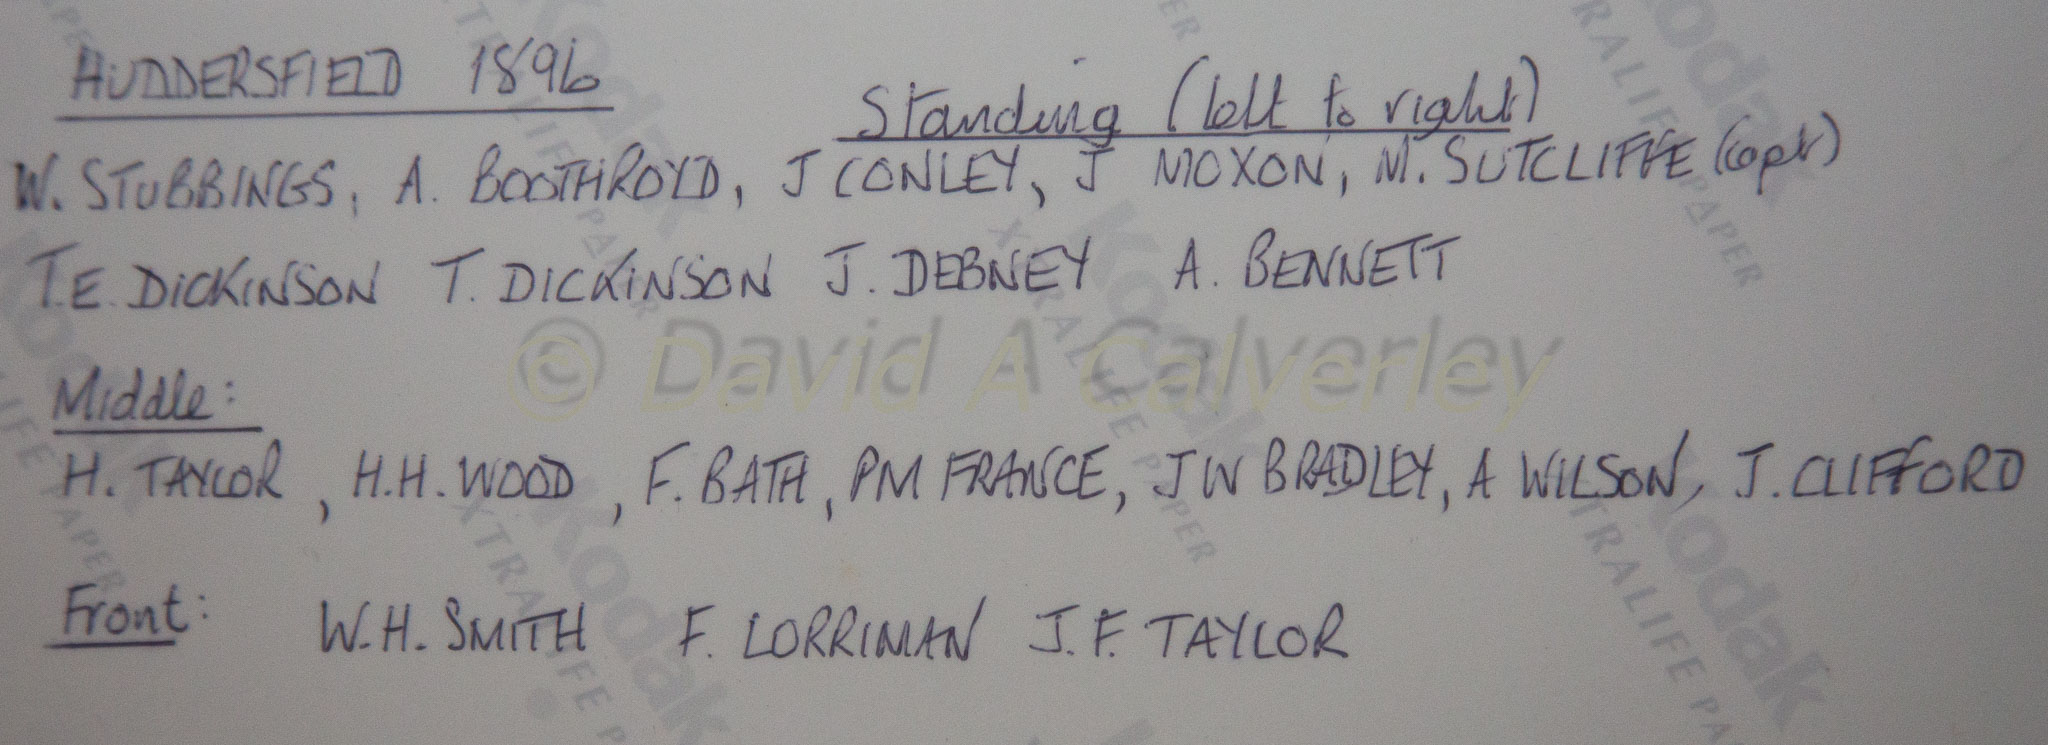 HUDDERSFIELD 1896
Standing (left to right)
W. STUBBINGS, A. BOOTHROYD, J CONLEY, J MOXON, M. SUTCLIFFE (capt)
T.E. DICKINSON T. DICKINSON J. DEBNEY A. BENNETT
© David A Calverley
Middle:
H. TAYLOR, H.H. WOOD, F. BATH, PM FRANCE, JW BRADLEY, A WILSON, J. CLIFFORD
Front: W.H. SMITH F. LORRIMAN J.F. TAYLOR
Kodak
XTRALIFE PAPER